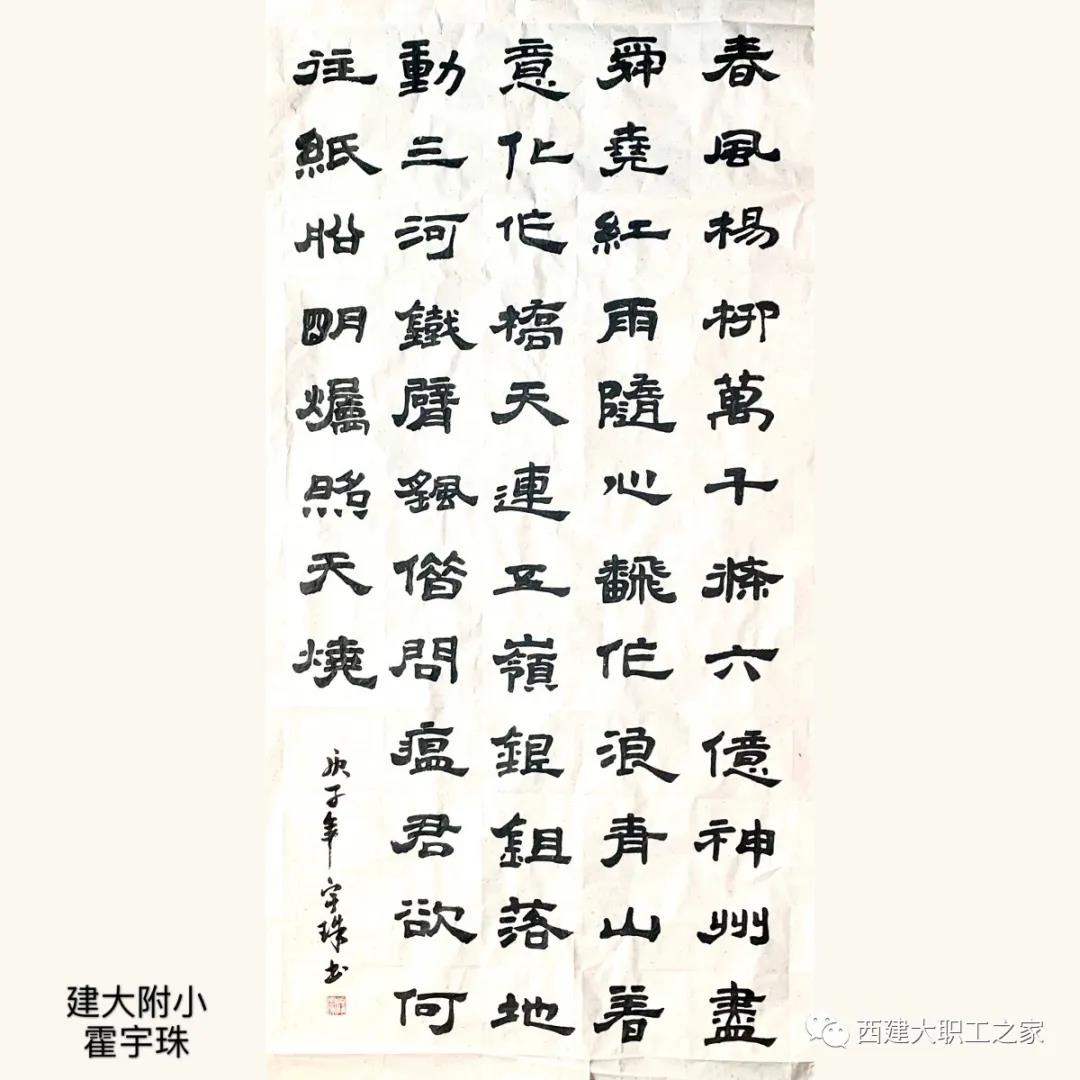 春風楊柳萬千條六億神州盡
舜堯紅雨隨心飜作浪青山着
意化作橋天連五嶺銀鉏落地
動三河鐵臂颻借問瘟君欲何
往紙船明燭照天燒
庚子年宇珠书
建大附小
霍宇珠
西建大职工之家